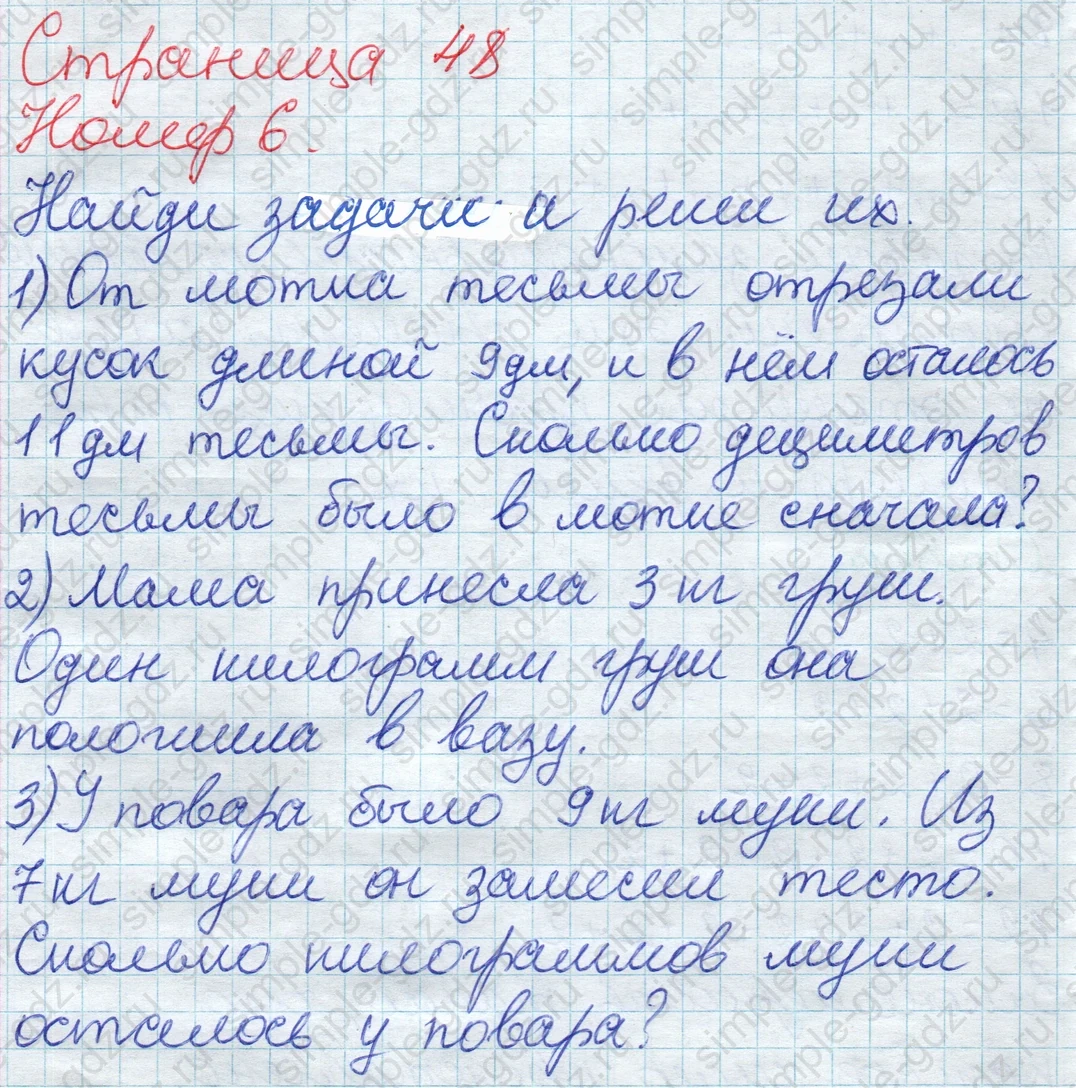 Страница 48
Номер 6.
Найди задачи и реши их.
1) От мотка тесьмы отрезали
кусок длиной 9дм, и в нём осталось
11дм тесьмы. Сколько дециметров
тесьмы было в мотке сначала?
2) Мама принесла 3кг груш.
Один килограмм груш она
положила в вазу.
3) У повара было 9кг муки. Из
7кг муки он замесил тесто.
Сколько килограммов муки
осталось у повара?
simple-gdz.ru